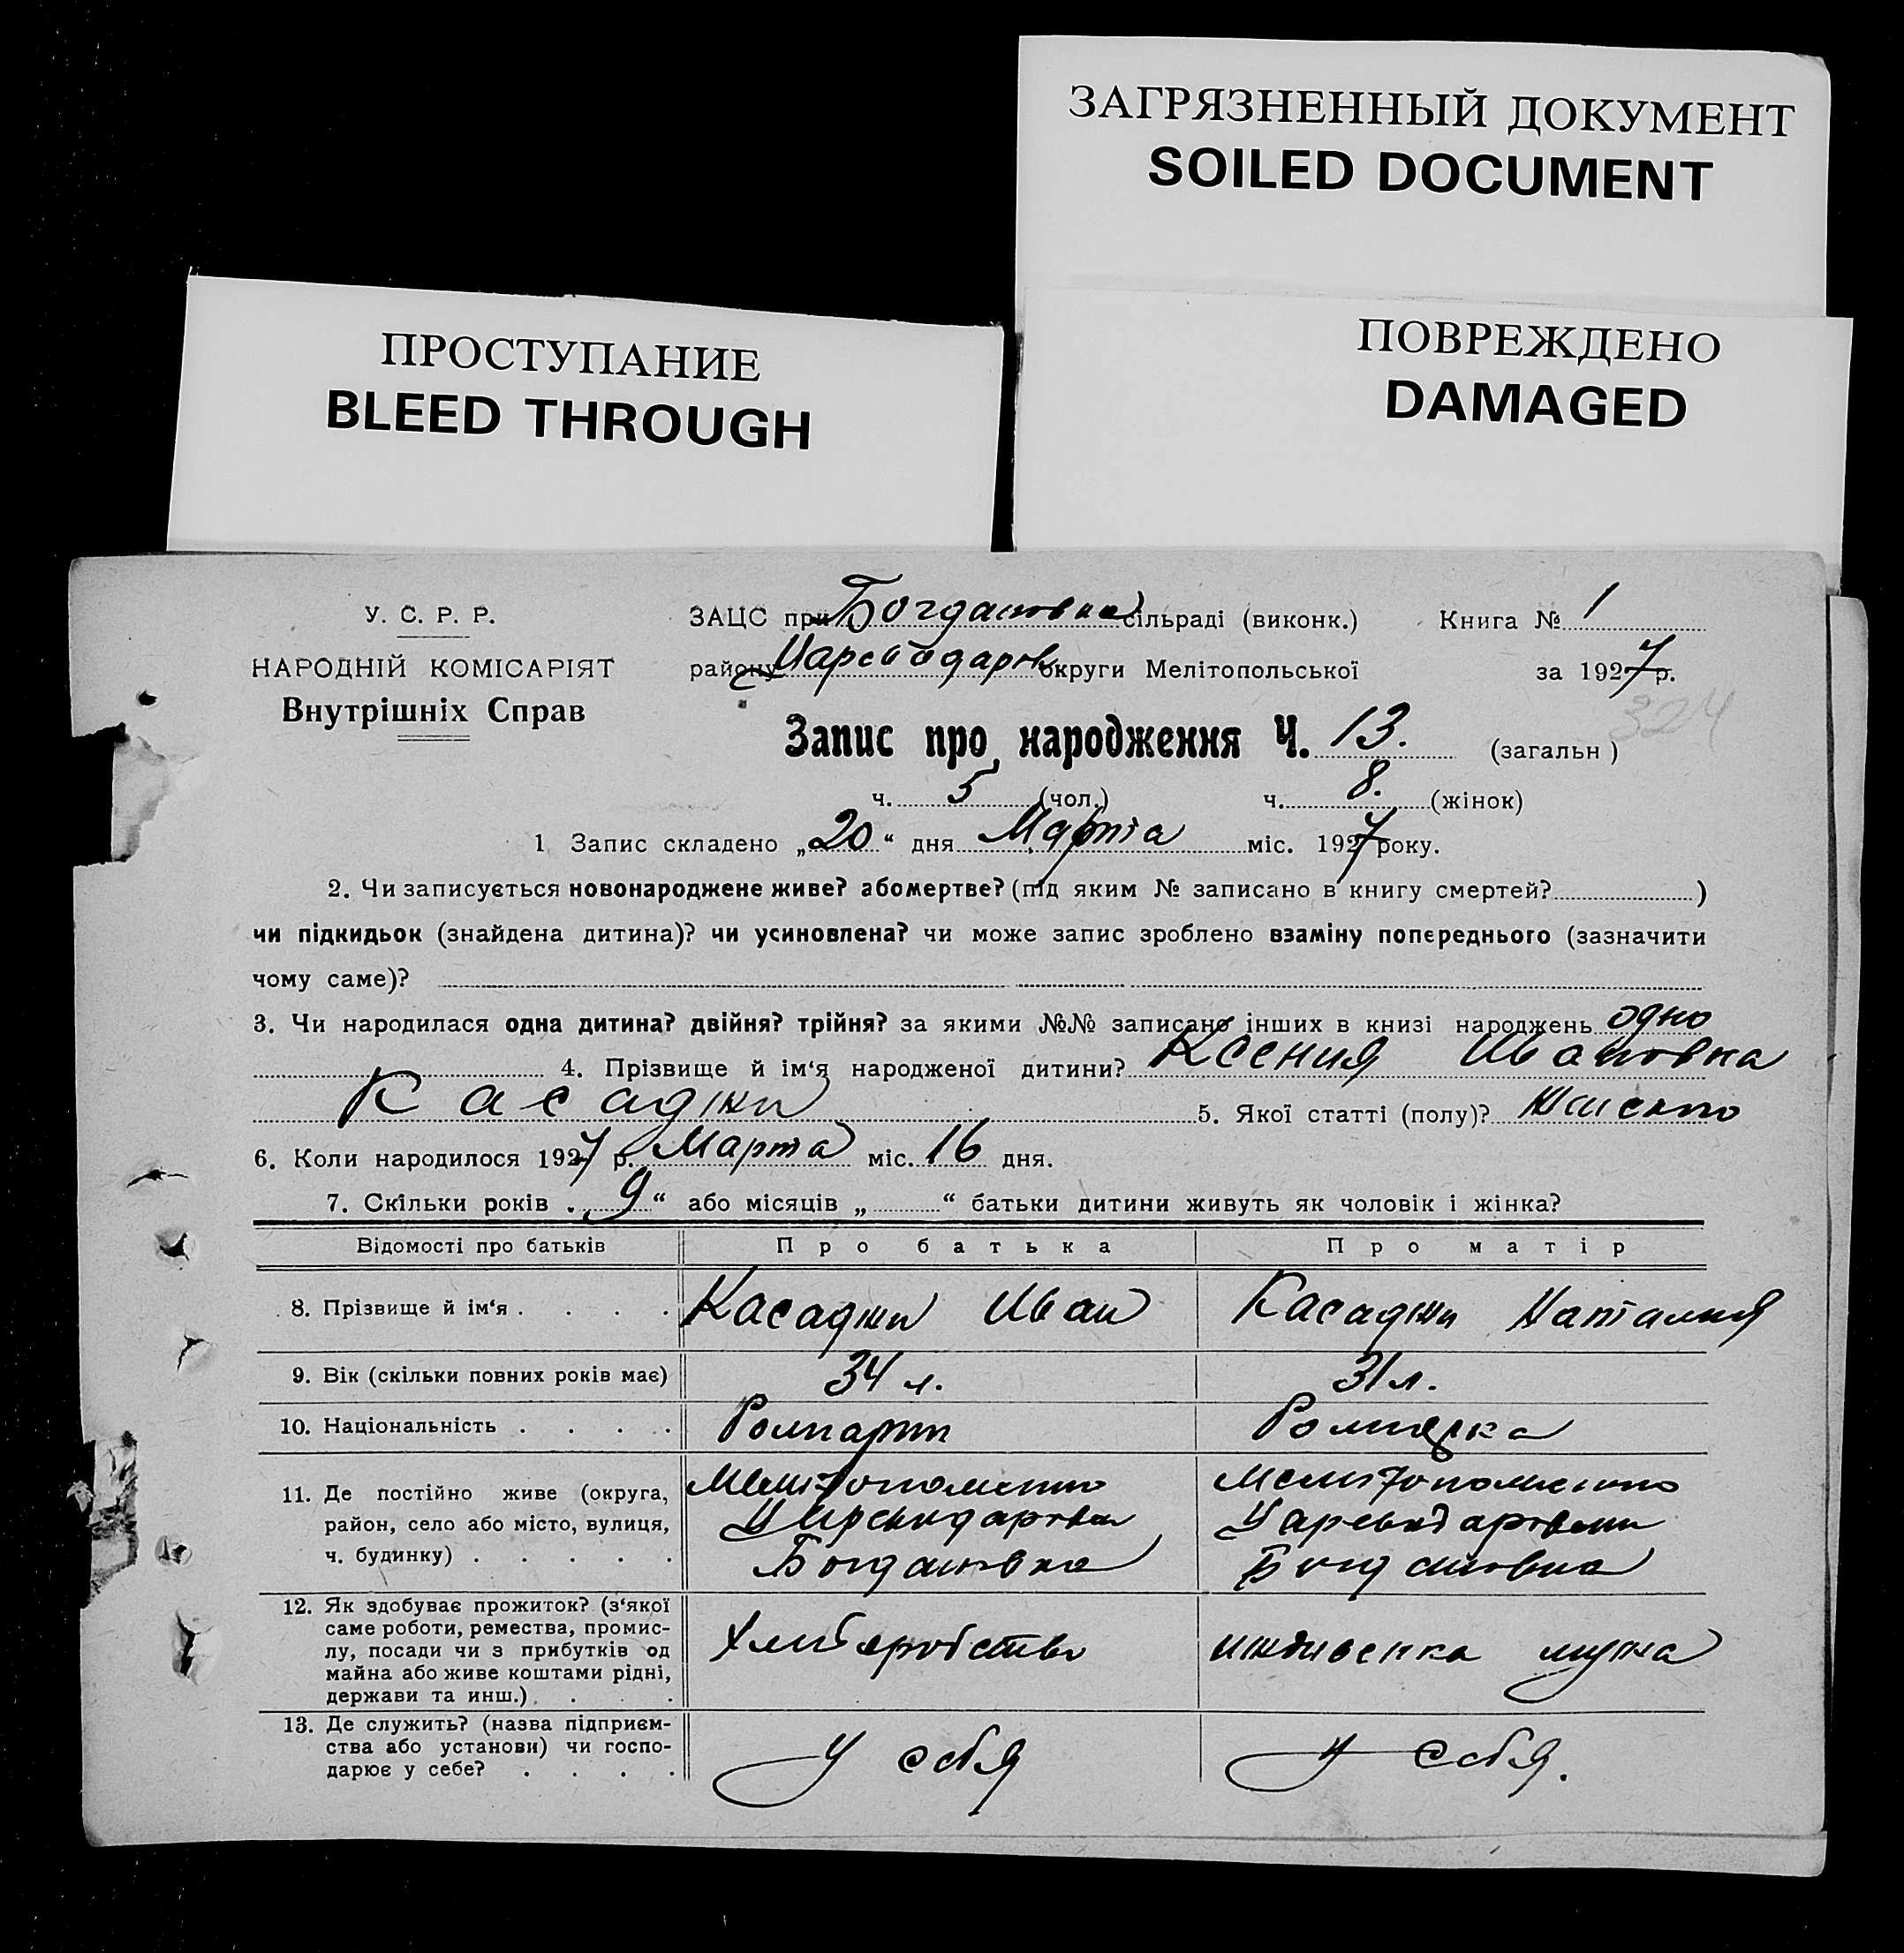 ЗАГРЯЗНЕННЫЙ ДОКУМЕНТ
SOILED DOCUMENT
ПРОСТУПАНИЕ
BLEED THROUGH
ПОВРЕЖДЕНО
DAMAGED
У. С. Р. Р.
НАРОДНІЙ КОМІСАРІЯТ
Внутрішніх Справ
ЗАЦС при Богдановка сільраді (виконк.) Книга № 1
району округи Мелітопольської за 1927 р.
324
Запис про народження Ч. 13. (загальн )
ч. 5 (чол.) ч. 8. (жінок)
1 Запис складено „20“ дня Марта міс. 1927 року.
2. Чи записується новонароджене живе? або мертве? (під яким № записано в книгу смертей? )
чи підкидьок (знайдена дитина)? чи усиновлена? чи може запис зроблено взаміну попереднього (зазначити
чому саме)?
3. Чи народилася одна дитина? двійня? трійня? за якими №№ записано інших в книзі народжень одно
4. Прізвище й ім‘я народженої дитини? Ксения Ивановна
Касаджи 5. Якої статті (полу)?
6. Коли народилося 1927 р. Марта міс. 16 дня.
7. Скільки років „9“ або місяців „ “ батьки дитини живуть як чоловік і жінка?
Відомості про батьків Про батька Про матір
8. Прізвище й ім‘я . . . . Касаджи Иван Касаджи Наталия
9. Вік (скільки повних років має) 34 л. 31 л.
10. Національність . . . .
11. Де постійно живе (округа,
район, село або місто, вулиця,
ч. будинку) . . . . . Богдановка Богдановка
12. Як здобуває прожиток? (з‘якої
саме роботи, ремества, промис-
лу, посади чи з прибутків од
майна або живе коштами рідні,
держави та инш.) . . .
Хлиборобство мужа
13. Де служить? (назва підприєм-
ства або установи) чи госпо-
дарює у себе? . . . . У себя У себя.